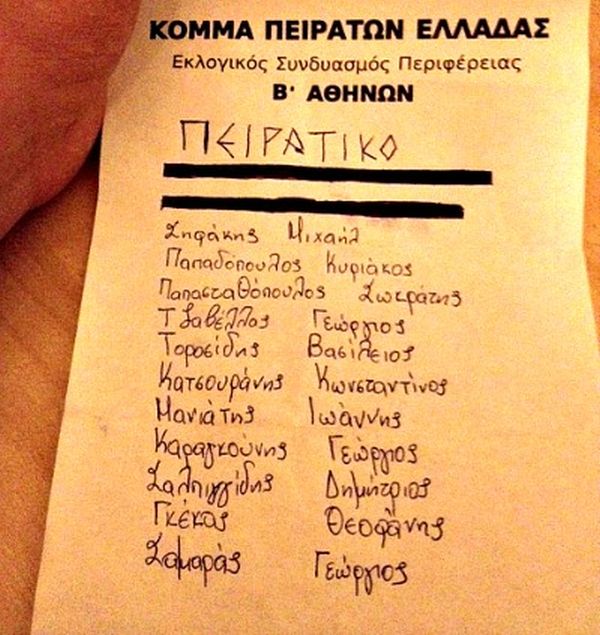 ΚΟΜΜΑ ΠΕΙΡΑΤΩΝ ΕΛΛΑΔΑΣ
Εκλογικός Συνδυασμός Περιφέρειας
Β' ΑΘΗΝΩΝ
ΠΕΙΡΑΤΙΚΟ
Σηφάκης Μιχαήλ
Παπαδόπουλος Κυριάκος
Παπασταθόπουλος Σωκράτης
Τζαβέλλας Γεώργιος
Τοροσίδης Βασίλειος
Κατσουράνης Κωνσταντίνος
Μανιάτης Ιωάννης
Καραγκούνης Γεώργιος
Σαλπιγγίδης Δημήτριος
Γκέκας Θεοφάνης
Σαμαράς Γεώργιος